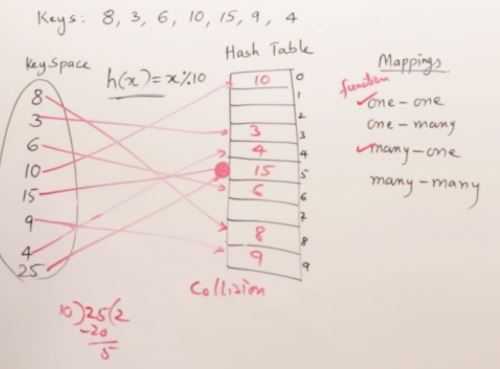 Keys: 8, 3, 6, 10, 15, 9, 4
Hash Table
Key Space
h(x) = x%10
Mappings
function
one - one
one - many
many - one
many - many
8
3
6
10
15
9
4
25
10 0
1
2
3 3
4 4
15 5
6 6
7
8 8
9 9
Collision
10)25(2
-20
5